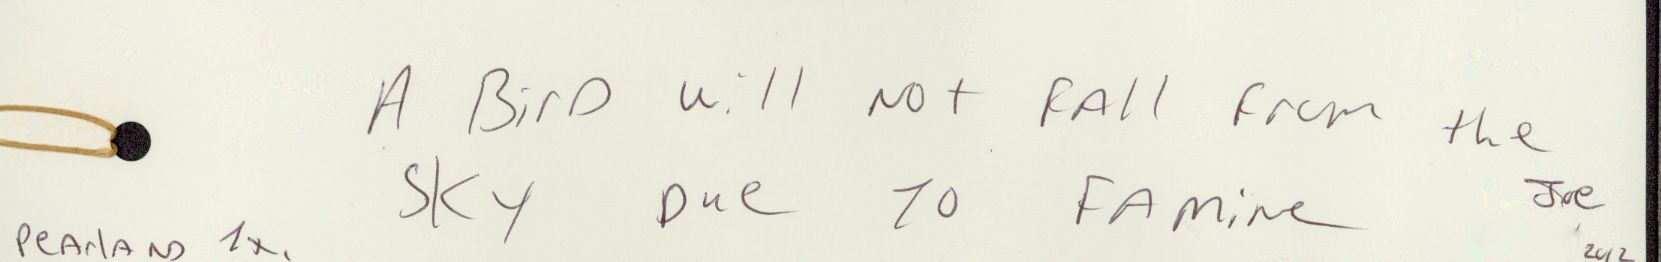 A BirD will NOT FAll From the
SKY Due TO FAmine
Joe
PeArlAND Tx.
2012